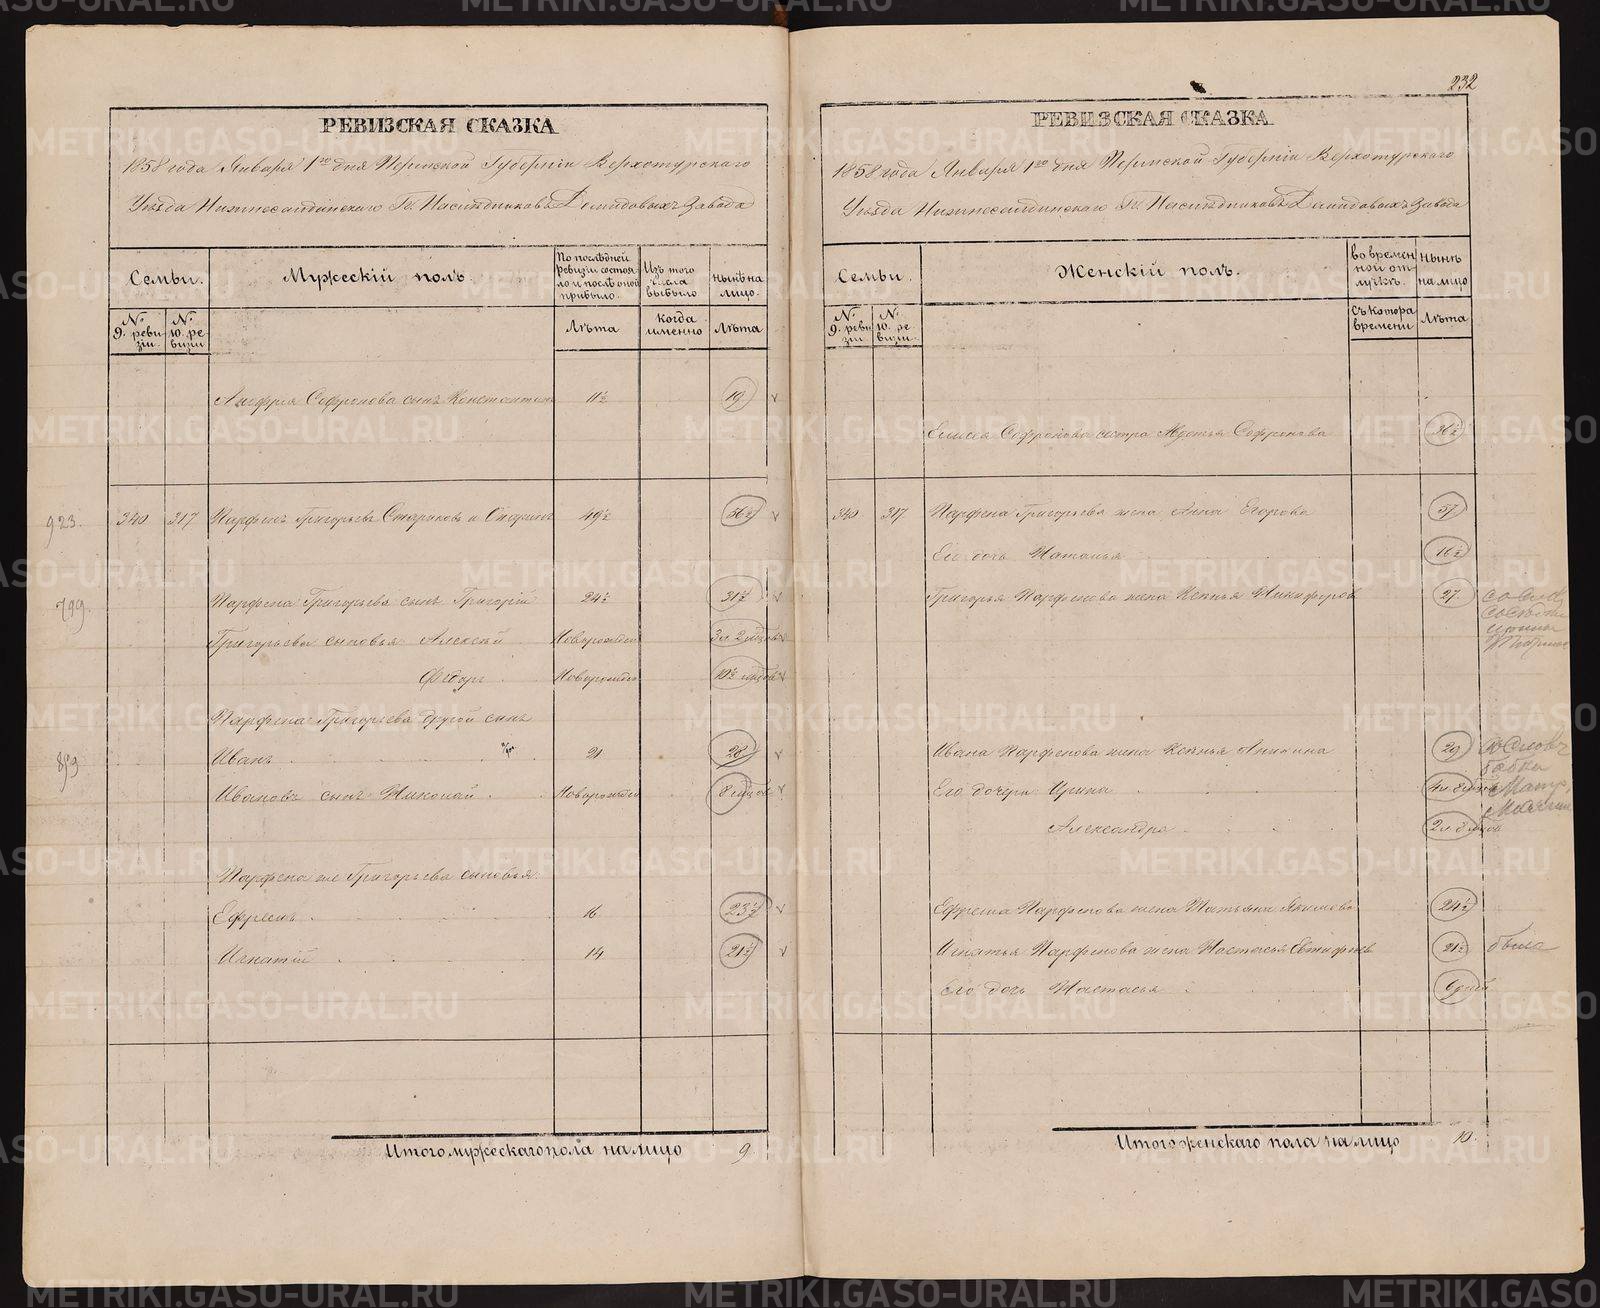 232
РЕВИЗСКАЯ СКАЗКА
1858 года Января 1го дня Пермской Губерніи Верхотурскаго
Уѣзда Нижнесалдинскаго Гг. Наслѣдниковъ Демидовыхъ Завода
Семьи.
Мужескій полъ.
По послѣдней ревизіи состояло и послѣ оной прибыло.
Изъ того числа выбыло
нынѣ на лицо.
№ 9. ревизіи.
№ 10. ревизіи
Лѣта
когда именно
Лѣта
Софронова сынъ Константинъ 11½ 19
923. 340 317 Парфенъ Григорьевъ 49½ 56½
799. Парфена Григорьева сынъ Григорій 24½ 31½
Григорьева сыновья Алексѣй Новорожден 3 л 2 мѣсов
Ѳедоръ Новорожден 10½ мѣсов
Парфена Григорьева другой сынъ
859 Иванъ 21 28
Ивановъ сынъ Николай Новорожден 8 мѣсов
Парфена же Григорьева сыновья
Ефремъ 16 23½
Игнатій 14 21½
Итого мужескаго пола на лицо 9
РЕВИЗСКАЯ СКАЗКА
1858 года Января 1го дня Пермской Губерніи Верхотурскаго
Уѣзда Нижнесалдинскаго Гг. Наслѣдниковъ Демидовыхъ Завода
Семьи.
Женскій полъ.
во временной отлучкѣ.
нынѣ на лицо
№ 9. ревизіи
№ 10. ревизіи.
Съ котора времени
Лѣта
Елисея Софронова сестра Софронова 36½
340 317 Парфена Григорьева жена Анна Егорова 57
Его дочь Наталья 16½
Григорья Парфенова жена Ксенья Никифоров 27
Ивана Парфенова жена Ксенья Аникина 29
Его дочери Ирина 4 л 8 мѣсов
Александра 2 л 8 мѣсов
Ефрема Парфенова жена Татьяна Якимова 24½
Игнатья Парфенова жена Настасья 21½ была
Его дочь Настасья 6 дней
Итого женскаго пола на лицо 10.
METRIKI.GASO-URAL.RU